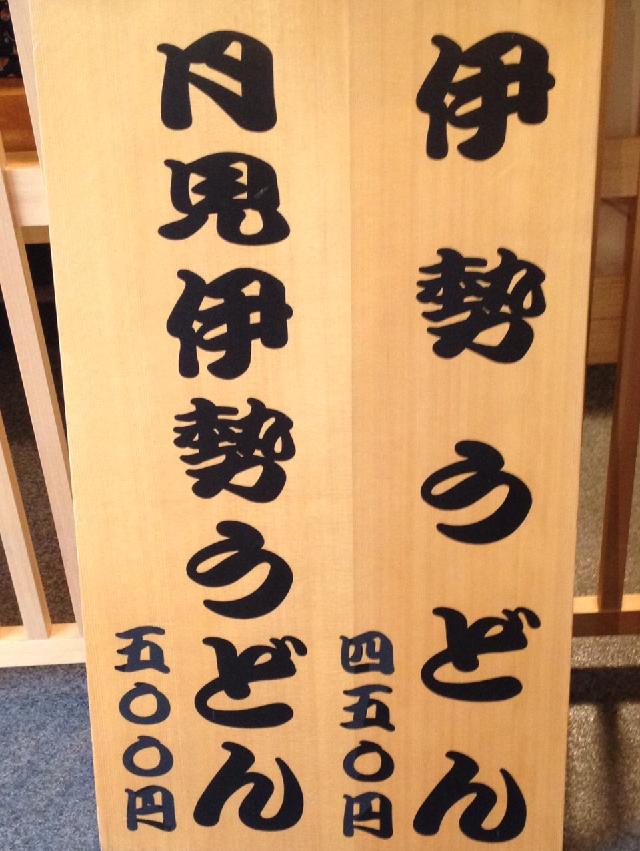 伊勢うどん
四五〇円
月見伊勢うどん
五〇〇円